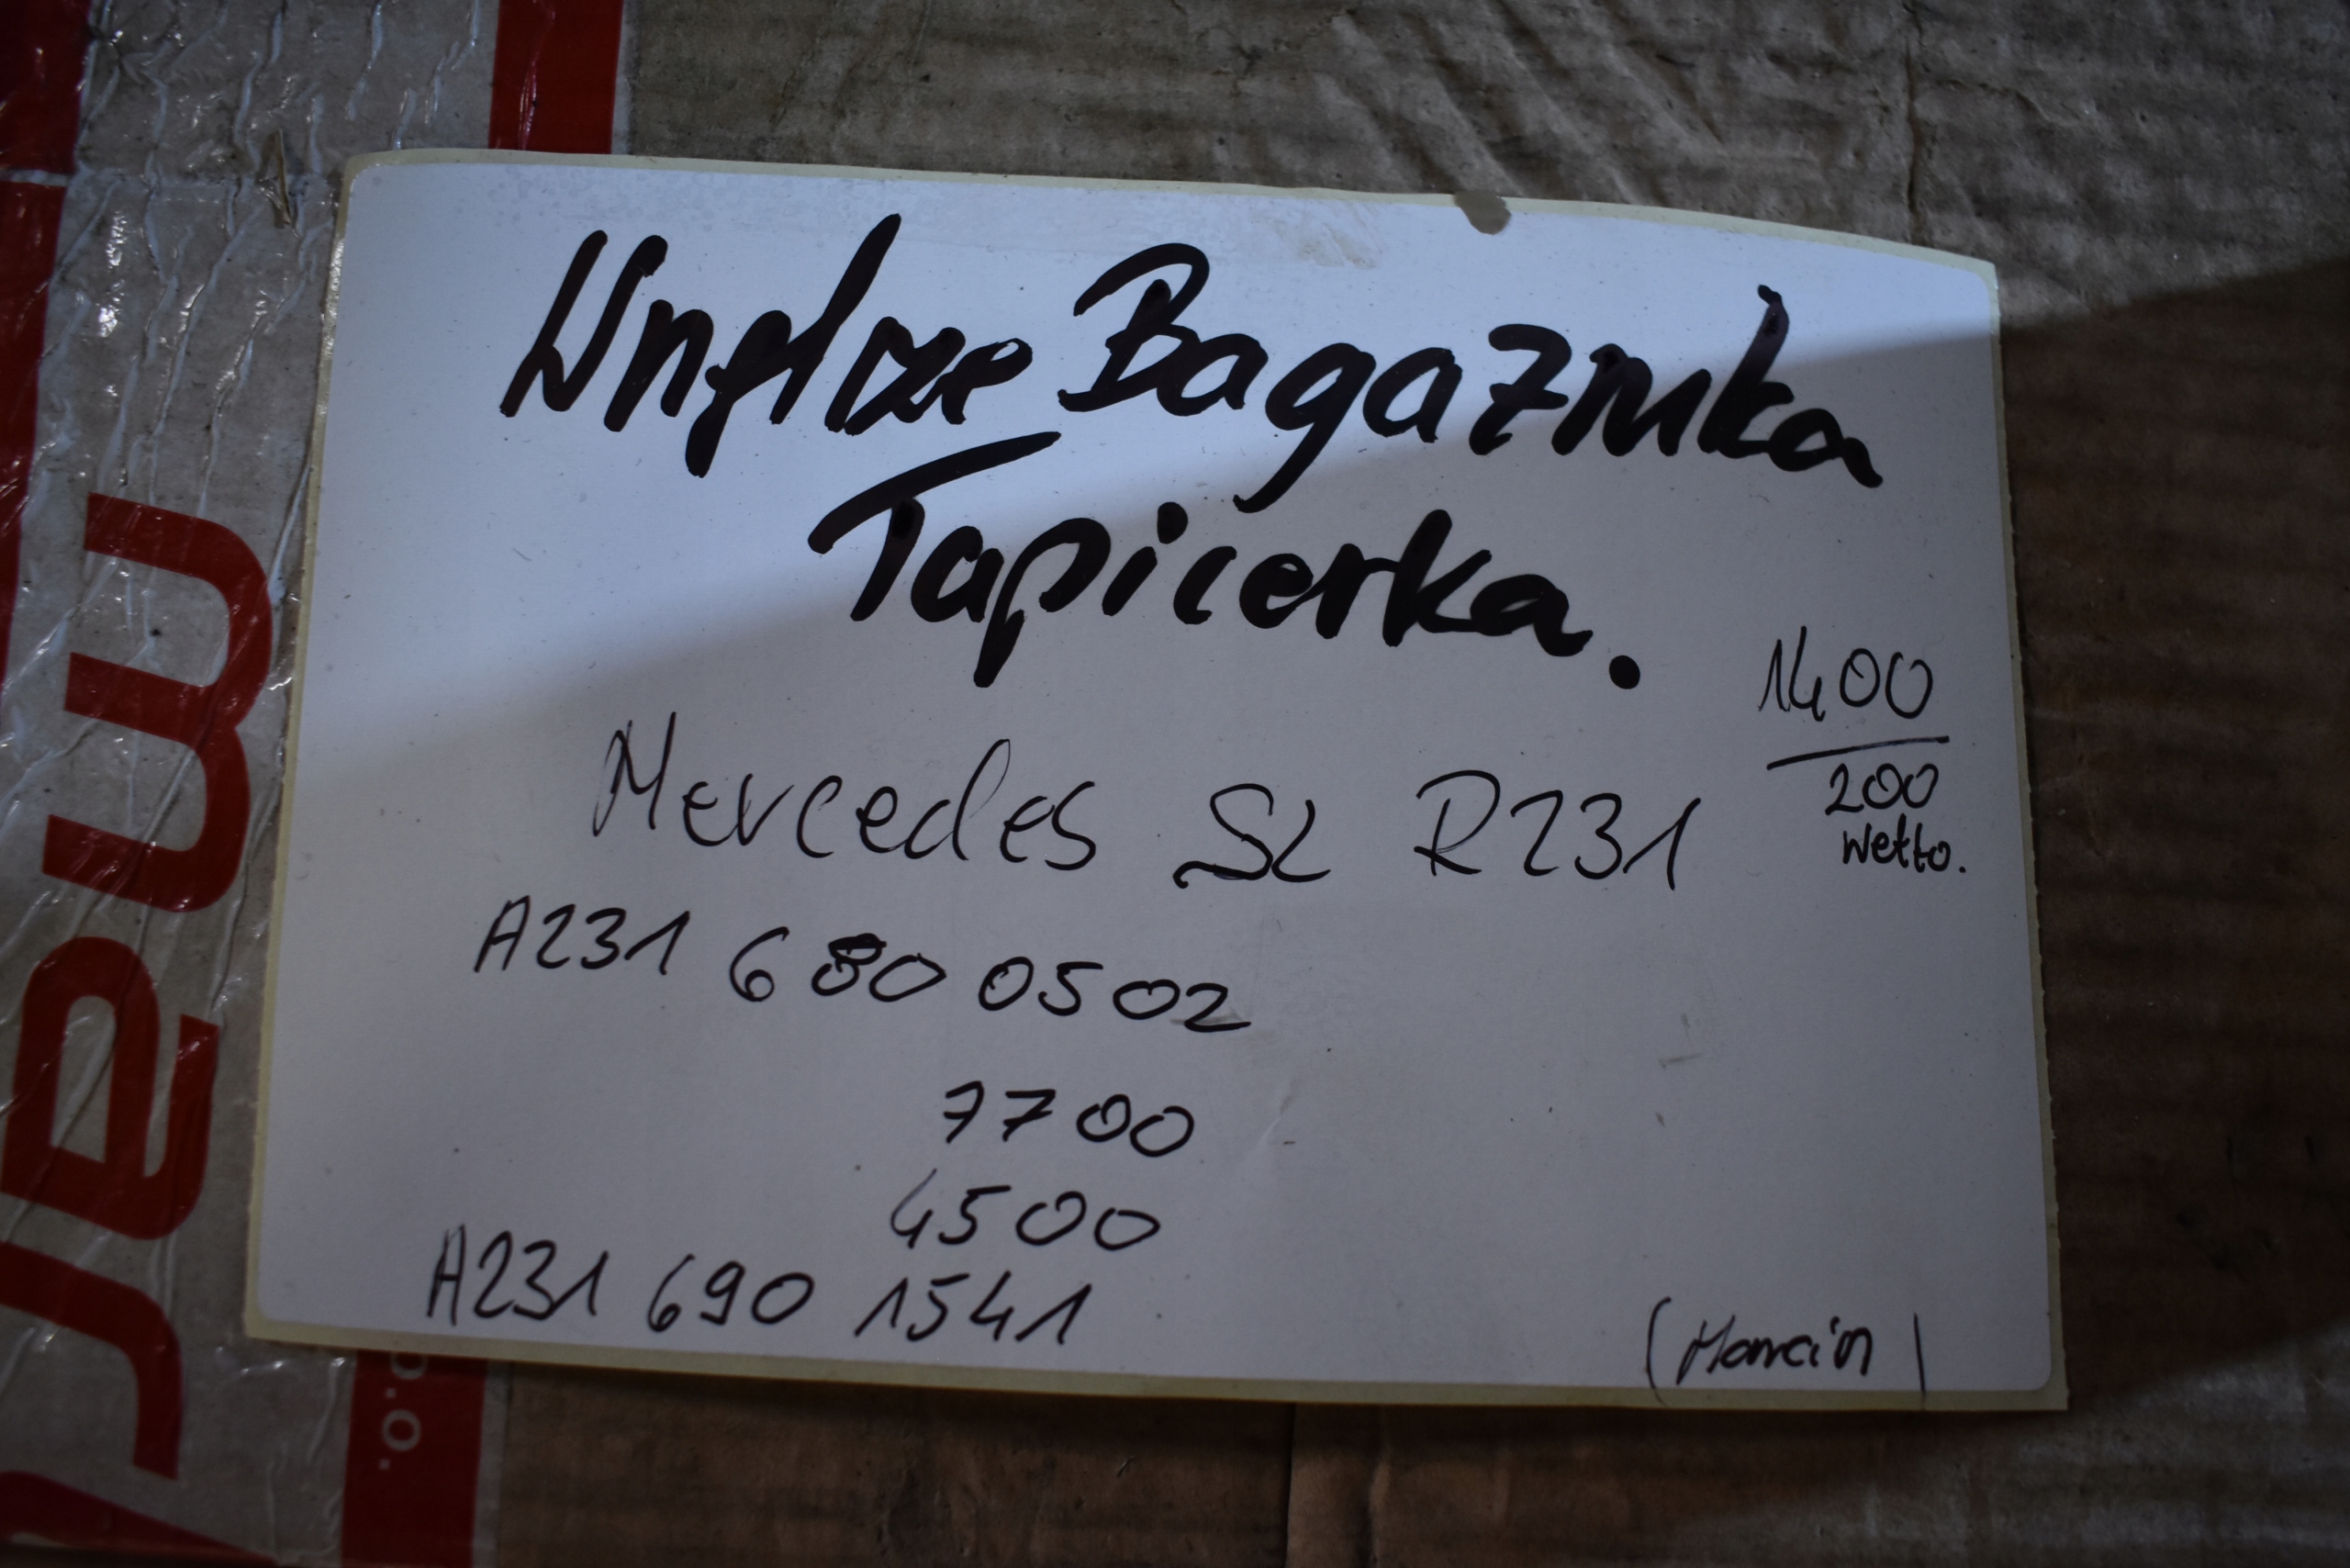 Wnętrze Bagaznika
Tapicerka.
1400
200
Netto.
Mercedes SL R231
A231 680 0502
7700
4500
A231 690 1541
(Marcin)
o.o.